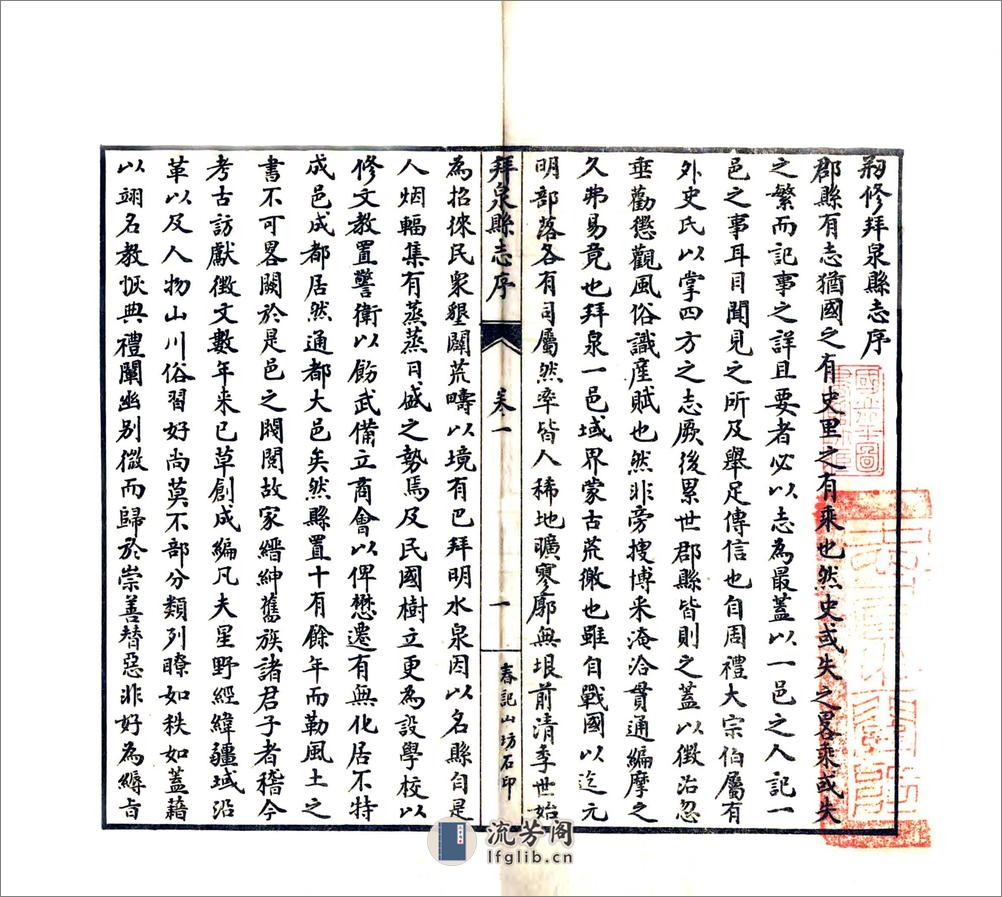 刱修拜泉縣志序
郡縣有志猶國之有史里之有乘也然史或失之畧乘或失
之繁而記事之詳且要者必以志為最蓋以一邑之人記一
邑之事耳目聞見之所及舉足傳信也自周禮大宗伯屬有
外史氏以掌四方之志厥後累世郡縣皆則之蓋以徵治忽
垂勸懲觀風俗識產賦也然非旁搜博采淹洽貫通編摩之
久弗易竟也拜泉一邑域界蒙古荒徼也雖自戰國以迄元
明部落各有司屬然率皆人稀地曠寥廓無垠前清季世始
拜泉縣志序
卷一
一
春記山坊石印
為招徠民衆墾闢荒疇以境有巴拜明水泉因以名縣自是
人烟輻集有蒸蒸日盛之勢焉及民國樹立更為設學校以
修文教置警衛以飭武備立商會以俾懋遷有無化居不特
成邑成都居然通都大邑矣然縣置十有餘年而勒風土之
書不可畧闕於是邑之閥閱故家縉紳舊族諸君子者稽今
考古訪獻徵文數年来已草創成編凡夫星野經緯疆域沿
革以及人物山川俗習好尚莫不部分類列瞭如秩如蓋藉
以翊名教恢典禮闡幽別微而歸於崇善替惡非好為縟旨
流芳阁
lfglib.cn